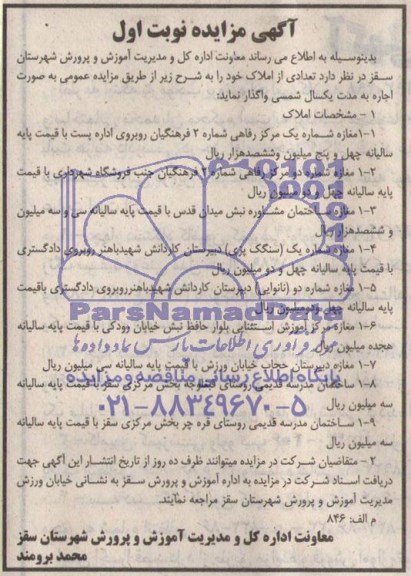 آگهی مزایده نوبت اول
بدینوسیله به اطلاع می رساند معاونت اداره کل و مدیریت آموزش و پرورش شهرستان
سقز در نظر دارد تعدادی از املاک خود را به شرح زیر از طریق مزایده عمومی به صورت
اجاره به مدت یکسال شمسی واگذار نماید:
۱ - مشخصات املاک
۱-۱مغازه شماره یک مرکز رفاهی شماره ۲ فرهنگیان روبروی اداره پست با قیمت پایه
سالیانه چهل و پنج میلیون وششصدهزار ریال
۲-۱ مغازه شماره دو مرکز رفاهی شماره ۲ فرهنگیان جنب فروشگاه شهرداری با قیمت
پایه سالیانه چهل و دو میلیون ریال
۳-۱ مغازه ساختمان مشاوره نبش میدان قدس با قیمت پایه سالیانه سی و سه میلیون
و ششصدهزار ریال
۴-۱ مغازه شماره یک (سنگک پزی) دبیرستان کاردانش شهیدباهنر روبروی دادگستری
با قیمت پایه سالیانه چهل و دو میلیون ریال
۵-۱ مغازه شماره دو (نانوایی) دبیرستان کاردانش شهیدباهنرروبروی دادگستری باقیمت
پایه سالیانه چهل ودومیلیون ریال
۶-۱ مغازه مرکز آموزش استثنایی بلوار حافظ نبش خیابان رودکی با قیمت پایه سالیانه
هجده میلیون ریال
۷-۱ مغازه دبیرستان حجاب خیابان ورزش با قیمت پایه سالیانه سی میلیون ریال
۸-۱ ساختمان مدرسه قدیمی روستای بخش مرکزی سقز با قیمت پایه سالیانه
سه میلیون ریال
۹-۱ ساختمان مدرسه قدیمی روستای قره چر بخش مرکزی سقز با قیمت پایه سالیانه
سه میلیون ریال
۲ - متقاضیان شرکت در مزایده میتوانند ظرف ده روز از تاریخ انتشار این آگهی جهت
دریافت اسناد شرکت در مزایده به اداره آموزش و پرورش سقز به نشانی خیابان ورزش
مدیریت آموزش و پرورش شهرستان سقز مراجعه نمایند.
م الف: ۸۴۶
معاونت اداره کل و مدیریت آموزش و پرورش شهرستان سقز
محمد برومند
ParsNamadData
مرکز فرآوری اطلاعات پارس نماد داده ها
پایگاه اطلاع رسانی مناقصه و مزایده
۰۲۱-۸۸۳۴۹۶۷۰-۵